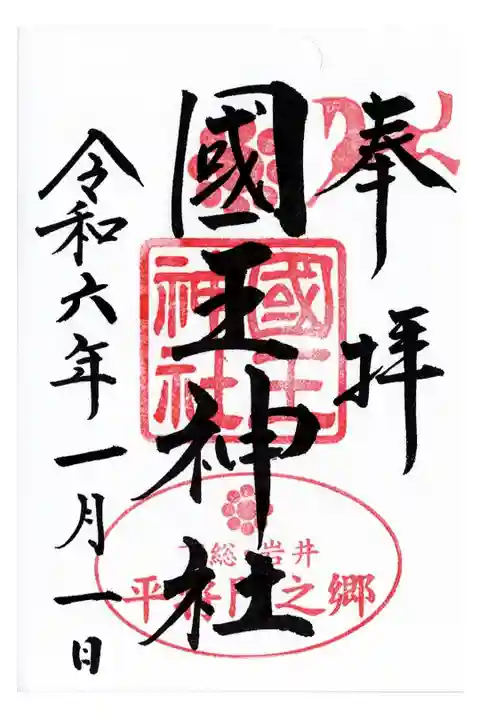 奉拝
國王神社
國王
神社
総 岩井
平将門之郷
令和六年一月一日